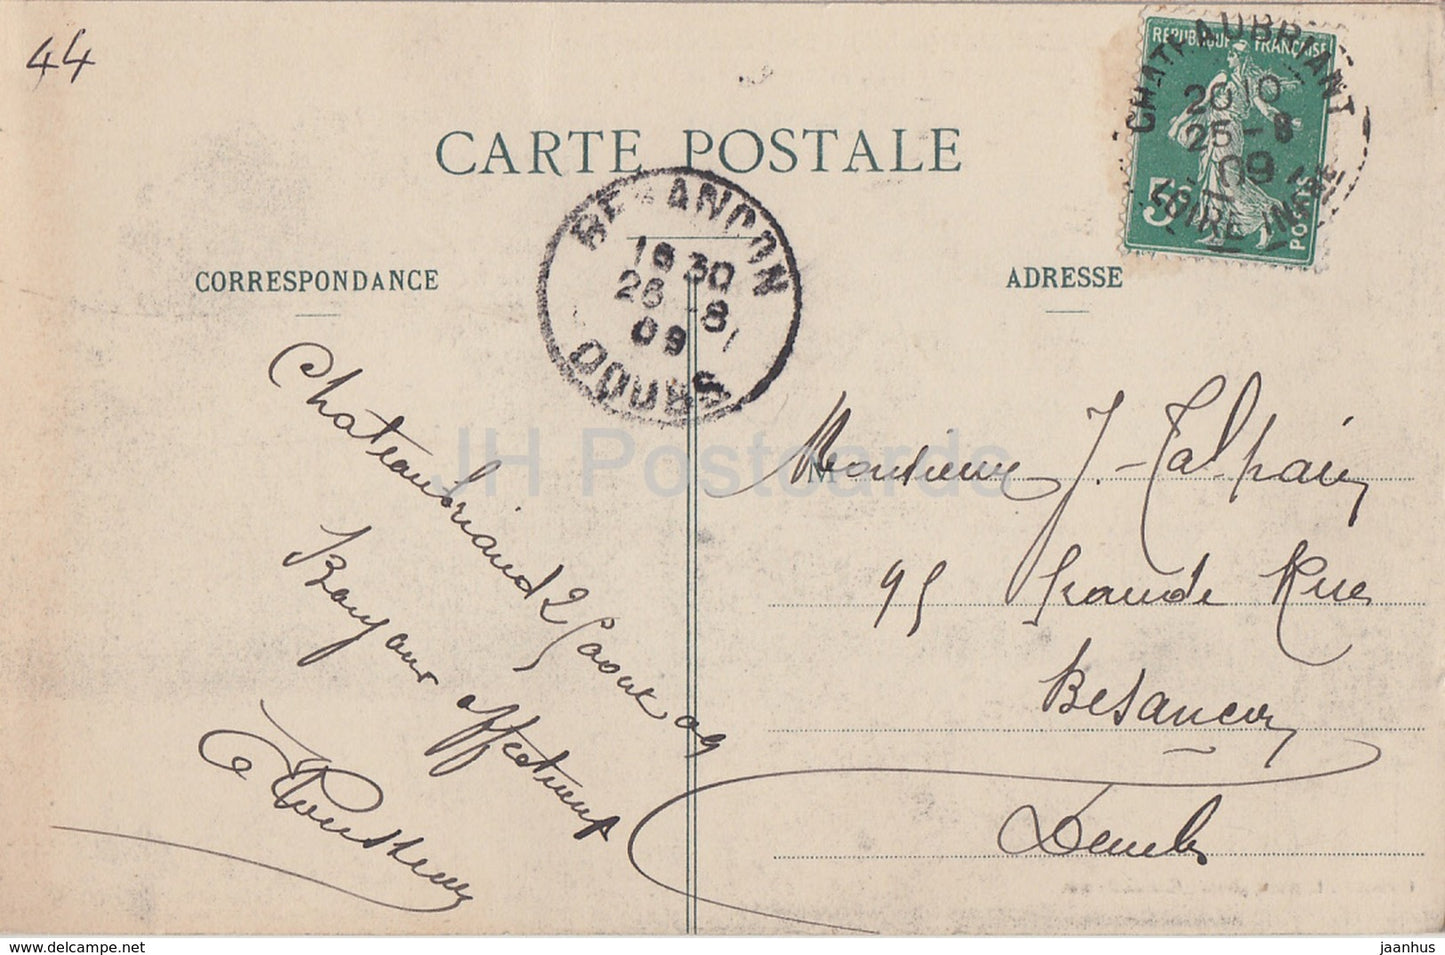 44
CARTE POSTALE
CORRESPONDANCE
ADRESSE
RÉPUBLIQUE FRANÇAISE
5c
POSTES
CHATEAUBRIANT
20 10
25-8
09
LOIRE INFRE
BESANCON
18 30
26-8
09
DOUBS
Chateaubriand 25 aout 09
Bonjour affectueux
Monsieur J.
95 Grande Rue
Besançon
Doubs
JH Postcards
jaanhus